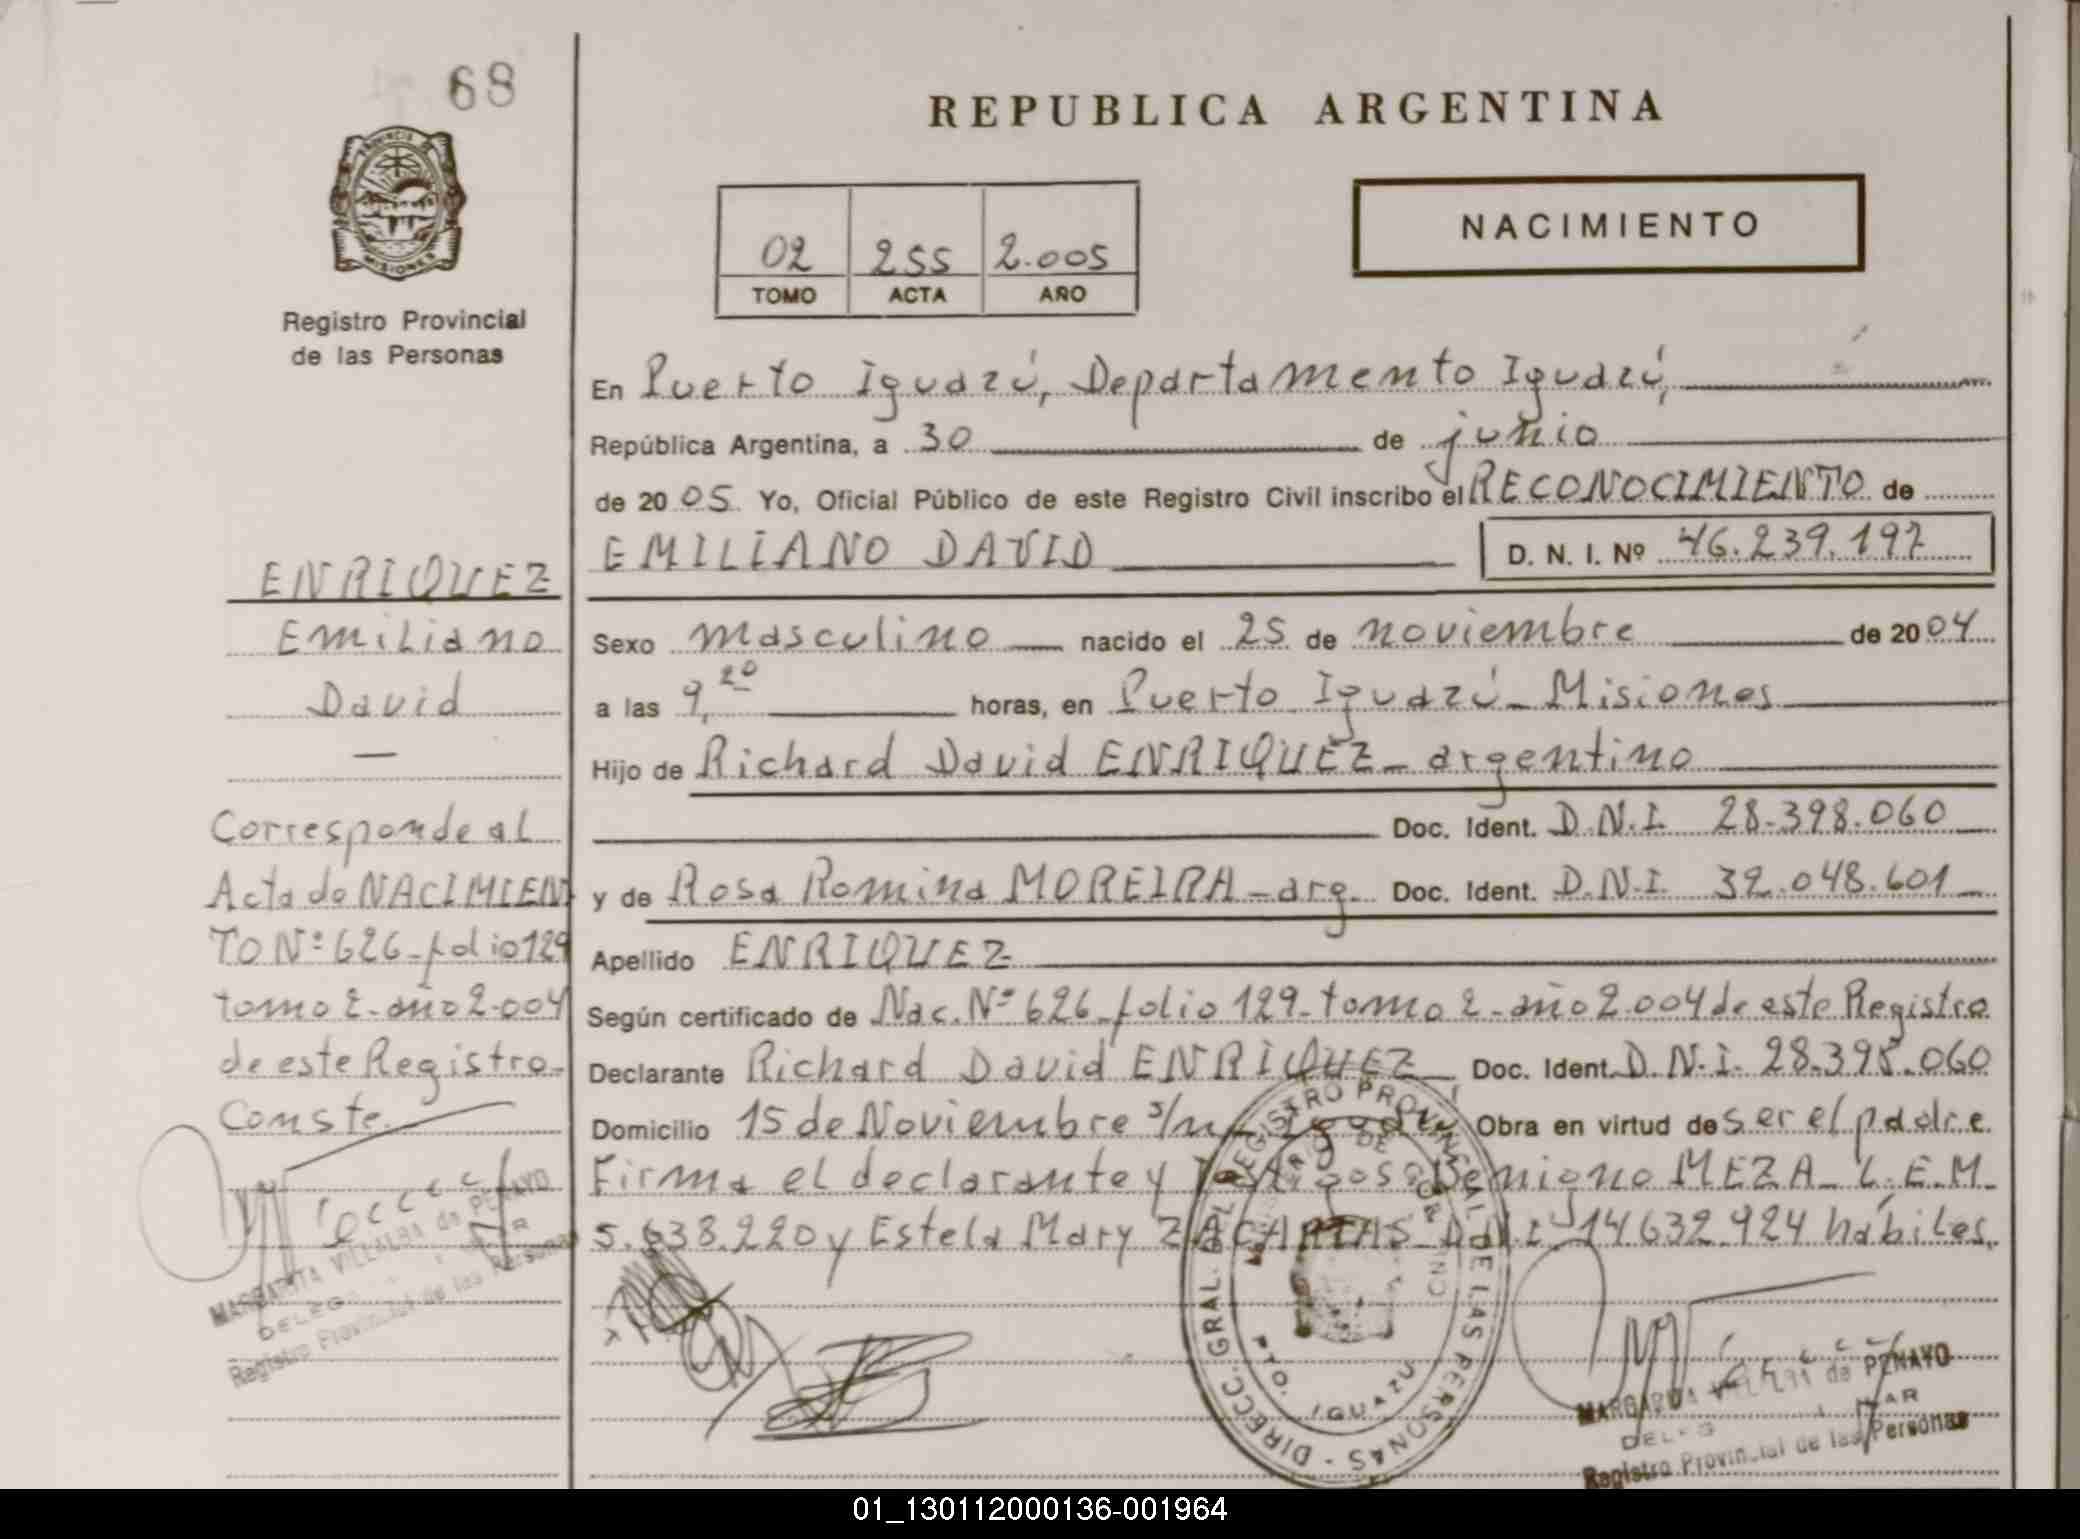 68
PROVINCIA DE
MISIONES
Registro Provincial
de las Personas
ENRIQUEZ
Emiliano
David
—
Corresponde al
Acta de NACIMIEN
TO Nº 626-folio 129
tomo 2-año 2.004
de este Registro.
Conste.
MARGARITA VILLALBA de PENAYO
Registro Provincial de las Personas
REPUBLICA ARGENTINA
02 255 2.005
TOMO ACTA AÑO
NACIMIENTO
En Puerto Iguazú, Departamento Iguazú,
República Argentina, a 30 de junio
de 20 05. Yo, Oficial Público de este Registro Civil inscribo el RECONOCIMIENTO de
EMILIANO DAVID D. N. I. Nº 46.239.197
Sexo masculino nacido el 25 de noviembre de 20 04
a las 9,20 horas, en Puerto Iguazú - Misiones
Hijo de Richard David ENRIQUEZ - argentino
Doc. Ident. D.N.I. 28.398.060
y de Rosa Romina MOREIRA - arg. Doc. Ident. D.N.I. 32.048.601
Apellido ENRIQUEZ
Según certificado de Nac. Nº 626-folio 129-tomo 2-año 2.004 de este Registro
Declarante Richard David ENRIQUEZ Doc. Ident. D.N.I. 28.398.060
Domicilio 15 de Noviembre s/n - Iguazú Obra en virtud de ser el padre.
Firma el declarante y testigos: Benigno MEZA - L.E.M.
5.638.220 y Estela Mary ZACARIAS D.N.I. 14.632.924 hábiles.
DIRECC. GRAL. DEL REGISTRO PROVINCIAL DE LAS PERSONAS -
MINISTERIO DE GOBIERNO
PTO. IGUAZU
MARGARITA VILLALBA de PENAYO
Registro Provincial de las Personas
01_130112000136-001964